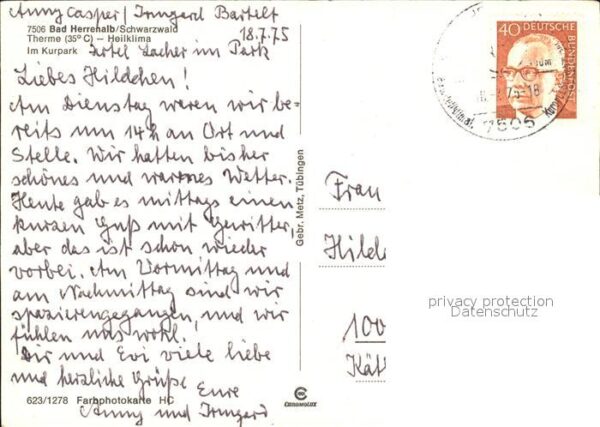 Anny Casper / Irmgard Bartelt
7506 Bad Herrenalb/Schwarzwald
18.7.75
Therme (35°C) – Heilklima
Im Kurpark
Hotel Lacher im Park
Liebes Hildchen!
Am Dienstag waren wir be-
reits um 14 h an Ort und
Stelle. Wir hatten bisher
schönes und warmes Wetter.
Heute gab es mittags einen
kurzen Guß mit Gewitter,
aber das ist schon wieder
vorbei. Am Vormittag und
am Nachmittag sind wir
spazierengegangen, und wir
fühlen uns wohl.
Dir und Evi viele liebe
und herzliche Grüße Eure
Anny und Irmgard
623/1278 Farbphotokarte HC
Gebr. Metz, Tübingen
CHROMOLUX
40 DEUTSCHE BUNDESPOST
7506
Frau
Hilde
100
Kät
privacy protection
Datenschutz